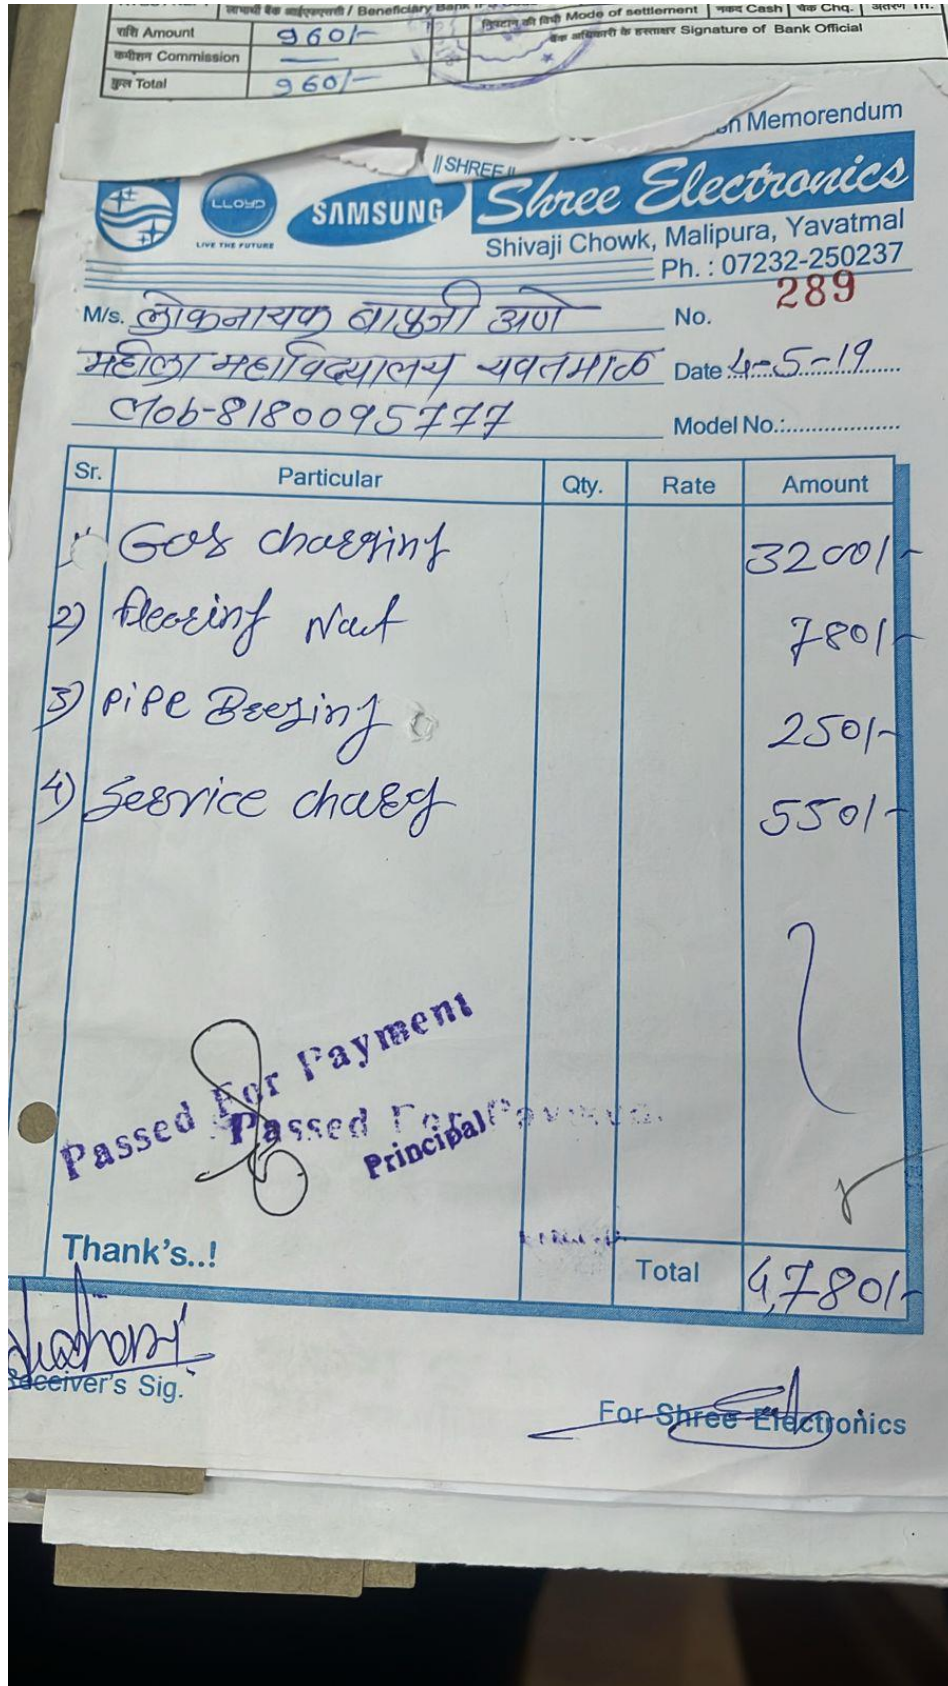 लाभार्थी बैंक आईएफएससी / Beneficiary Bank
राशि Amount 960/-
कमीशन Commission —
कुल Total 960/-
निपटान की विधी Mode of settlement नकद Cash चेक Chq. अंतरण
बैंक अधिकारी के हस्ताक्षर Signature of Bank Official
Memorendum
|| SHREE ||
LLOYD
LIVE THE FUTURE
SAMSUNG
Shree Electronics
Shivaji Chowk, Malipura, Yavatmal
Ph. : 07232-250237
M/s. लोकनायक बापुजी अणे No. 289
महीला महाविद्यालय यवतमाळ Date 4-5-19
Mob-8180095777 Model No.:
Sr. Particular Qty. Rate Amount
1) Gas charging 3200/-
2) flearing Naut 780/-
3) PiPe Breezing 250/-
4) Service charg 550/-
Passed For Payment
Passed For Payment
Principal
Thank's..! Total 4,780/-
Receiver's Sig.
For Shree Electronics